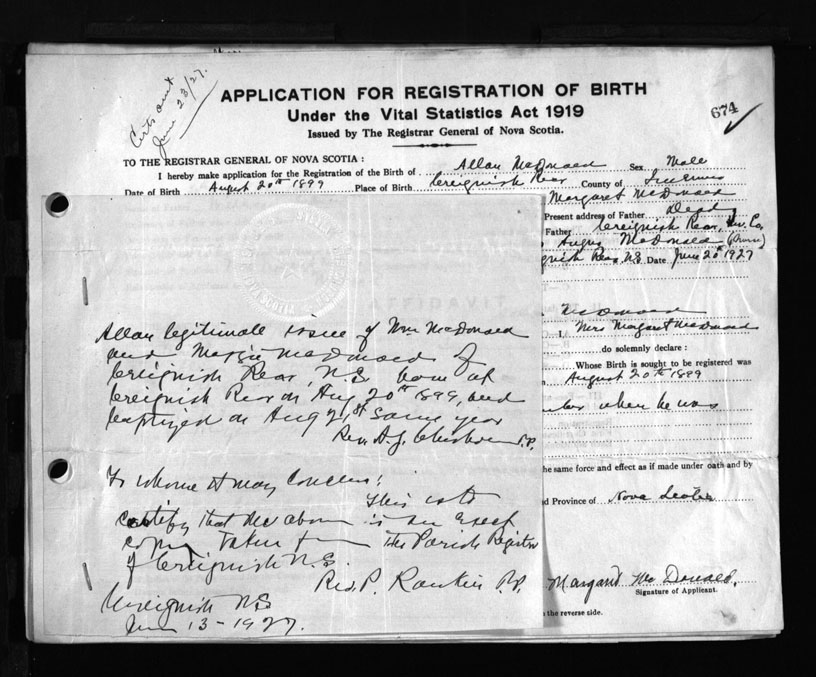 Certs out
June 23/27.
APPLICATION FOR REGISTRATION OF BIRTH
Under the Vital Statistics Act 1919
Issued by The Registrar General of Nova Scotia.
674
TO THE REGISTRAR GENERAL OF NOVA SCOTIA:
I hereby make application for the Registration of the Birth of Allan McDonald Sex Male
Date of Birth August 20th 1899 Place of Birth Creignish Rear County of Inverness
Margaret McDonald
Present address of Father Dead
Father Creignish Rear, Inv. Co,
Angus McDonald
Rear, N.S. Date June 20th 1927
McDonald
I, Mrs Margaret McDonald
do solemnly declare:
Whose Birth is sought to be registered was
August 20th 1899
when he was
the same force and effect as if made under oath and by
d Province of Nova Scotia
Margaret McDonald,
Signature of Applicant.
the reverse side.
Allan legitimate issue of Wm McDonald
and Maggie McDonald of
Creignish Rear, N.S. born at
Creignish Rear on Aug 20th 1899, and
baptized on Aug 21st same year
Rev. A. J. Chisholm P.P.
To whome it may Concern;
This is to
certify that the above is an exact
copy taken from The Parish Register
of Creignish N.S.
Rev. P. Rankin P.P.
Creignish N.S
June 13 - 1927.